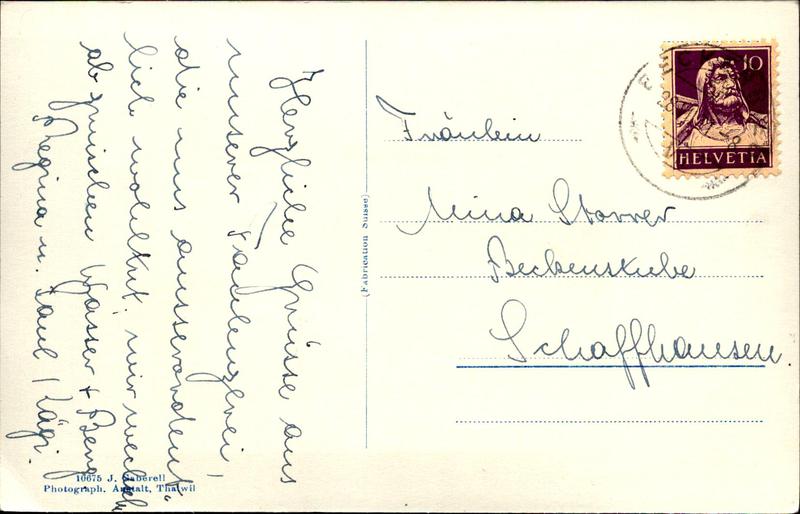 Herzliche Grüsse aus
unserer Faulenzerei,
die uns ausserordent-
lich wohltut; wir wechseln
ab zwischen Wasser + Berg
Regina u. Paul Kägi.
10675 J. Gaberell
Photograph. Anstalt, Thalwil
(Fabrication Suisse)
10
HELVETIA
Fräulein
Mina Storrer
Beckenstube
Schaffhausen